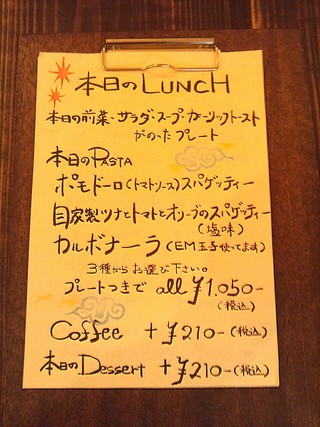 本日のLUNCH
本日の前菜・サラダ・スープ ガーリックトースト
がのったプレート
本日のPASTA
ポモドーロ(トマトソース)スパゲッティー
自家製ツナとトマトとオリーブのスパゲッティー
(塩味)
カルボナーラ(EM玉子使ってます)
3種からお選び下さい。
プレートつきで all ¥1,050-
(税込)
Coffee +¥210-(税込)
本日のDessert +¥210-(税込)